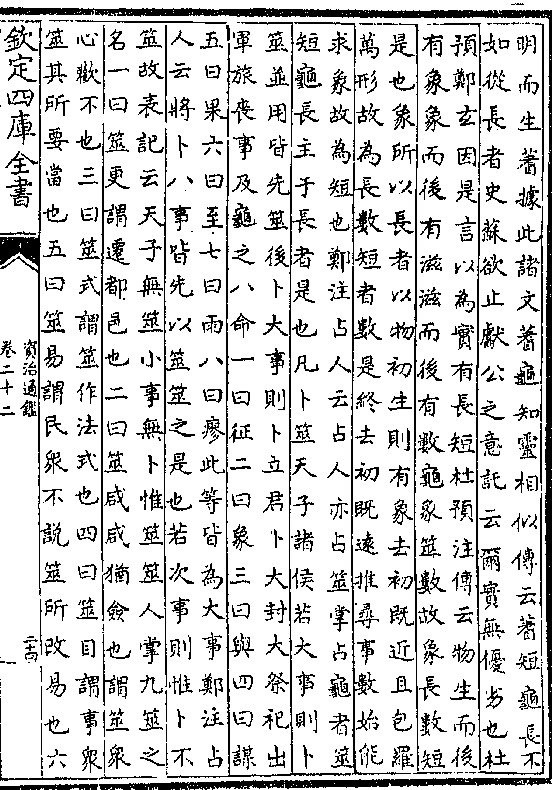 明而生蓍據此諸文蓍龜知靈相似傳云蓍短龜長不
如從長者史蘇欲止獻公之意託云爾實無優劣也杜
預鄭玄因是言以為實有長短杜預注傳云物生而後
有象象而後有滋滋而後有數龜象筮數故象長數短
是也象所以長者以物初生則有象去初既近且包羅
萬形故為長數短者數是終去初既遠推尋事數始能
求象故為短也鄭注占人云占人亦占筮掌占龜者筮
短龜長主于長者是也凡卜筮天子諸侯若大事則卜
筮並用皆先筮後卜大事則卜立君卜大封大祭祀出
軍旅喪事及龜之八命一曰征二曰象三曰與四曰謀
五曰果六曰至七曰雨八曰瘳此等皆為大事鄭注占
人云將卜八事皆先以筮筮之是也若次事則惟卜不
筮故表記云天子無筮小事無卜惟筮筮人掌九筮之
名一曰筮更謂遷都邑也二曰筮咸咸猶僉也謂筮衆
心歉不也三曰筮式謂筮作法式也四曰筮目謂事衆
筮其所要當也五曰筮易謂民衆不說筮所改易也六
欽定四庫全書
資治通鑑
卷二十二
二十四